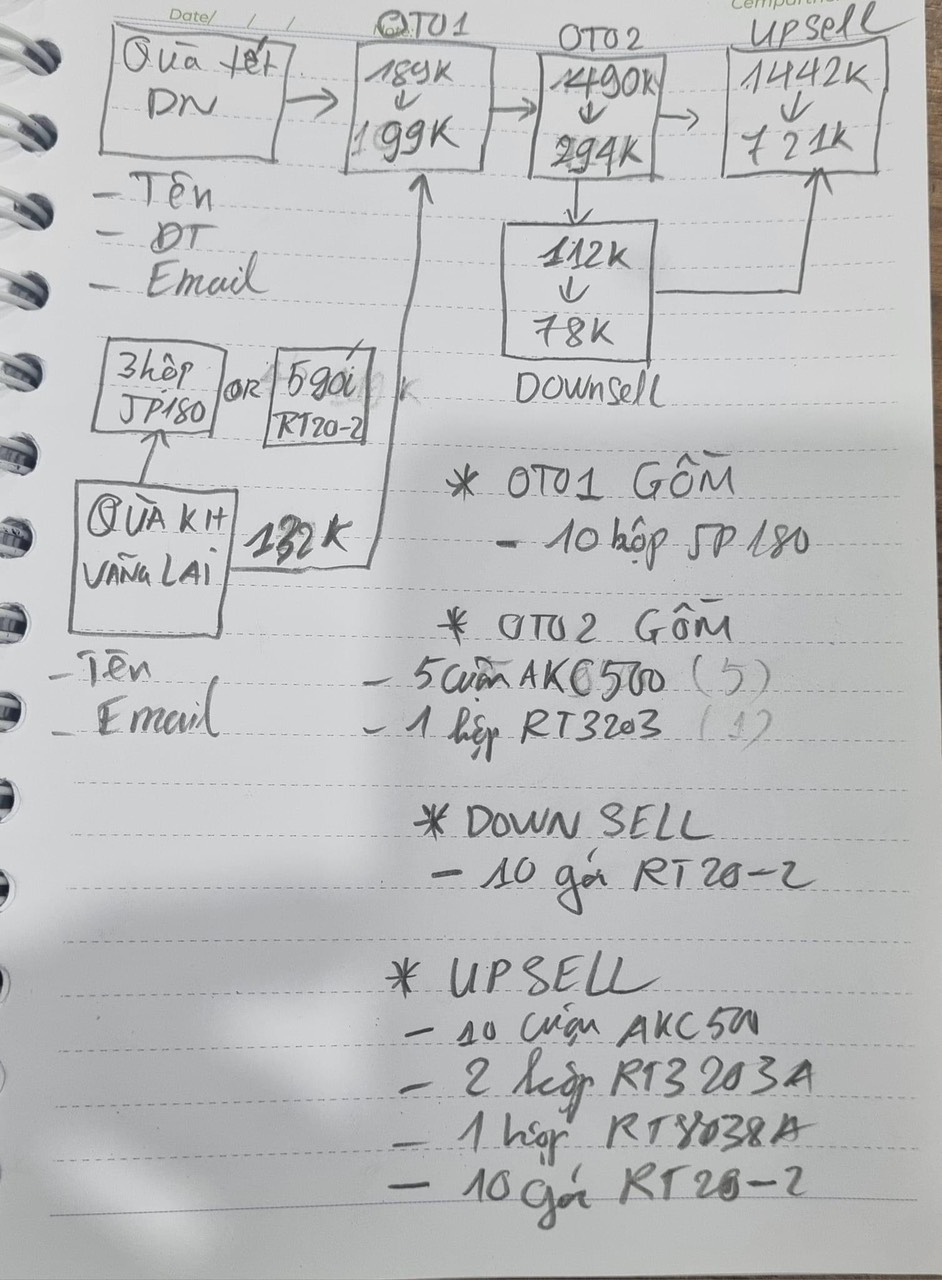 Date/ / /
OTO1
OTO2
UPSELL
Quà tết
DN
189K
199K
1490K
294K
1442K
721K
- Tên
- ĐT
- Email
112K
78K
Downsell
3 hộp
JP180
OR
5 gói
RT20-2
QUÀ KH
VÃNG LAI
132K
- Tên
- Email
* OTO1 GỒM
- 10 hộp JP180
* OTO2 GỒM
- 5 cuộn AKC500 (5)
- 1 hộp RT3203 (1)
* DOWN SELL
- 10 gói RT20-2
* UPSELL
- 10 cuộn AKC500
- 2 hộp RT3203A
- 1 hộp RT8038A
- 10 gói RT20-2